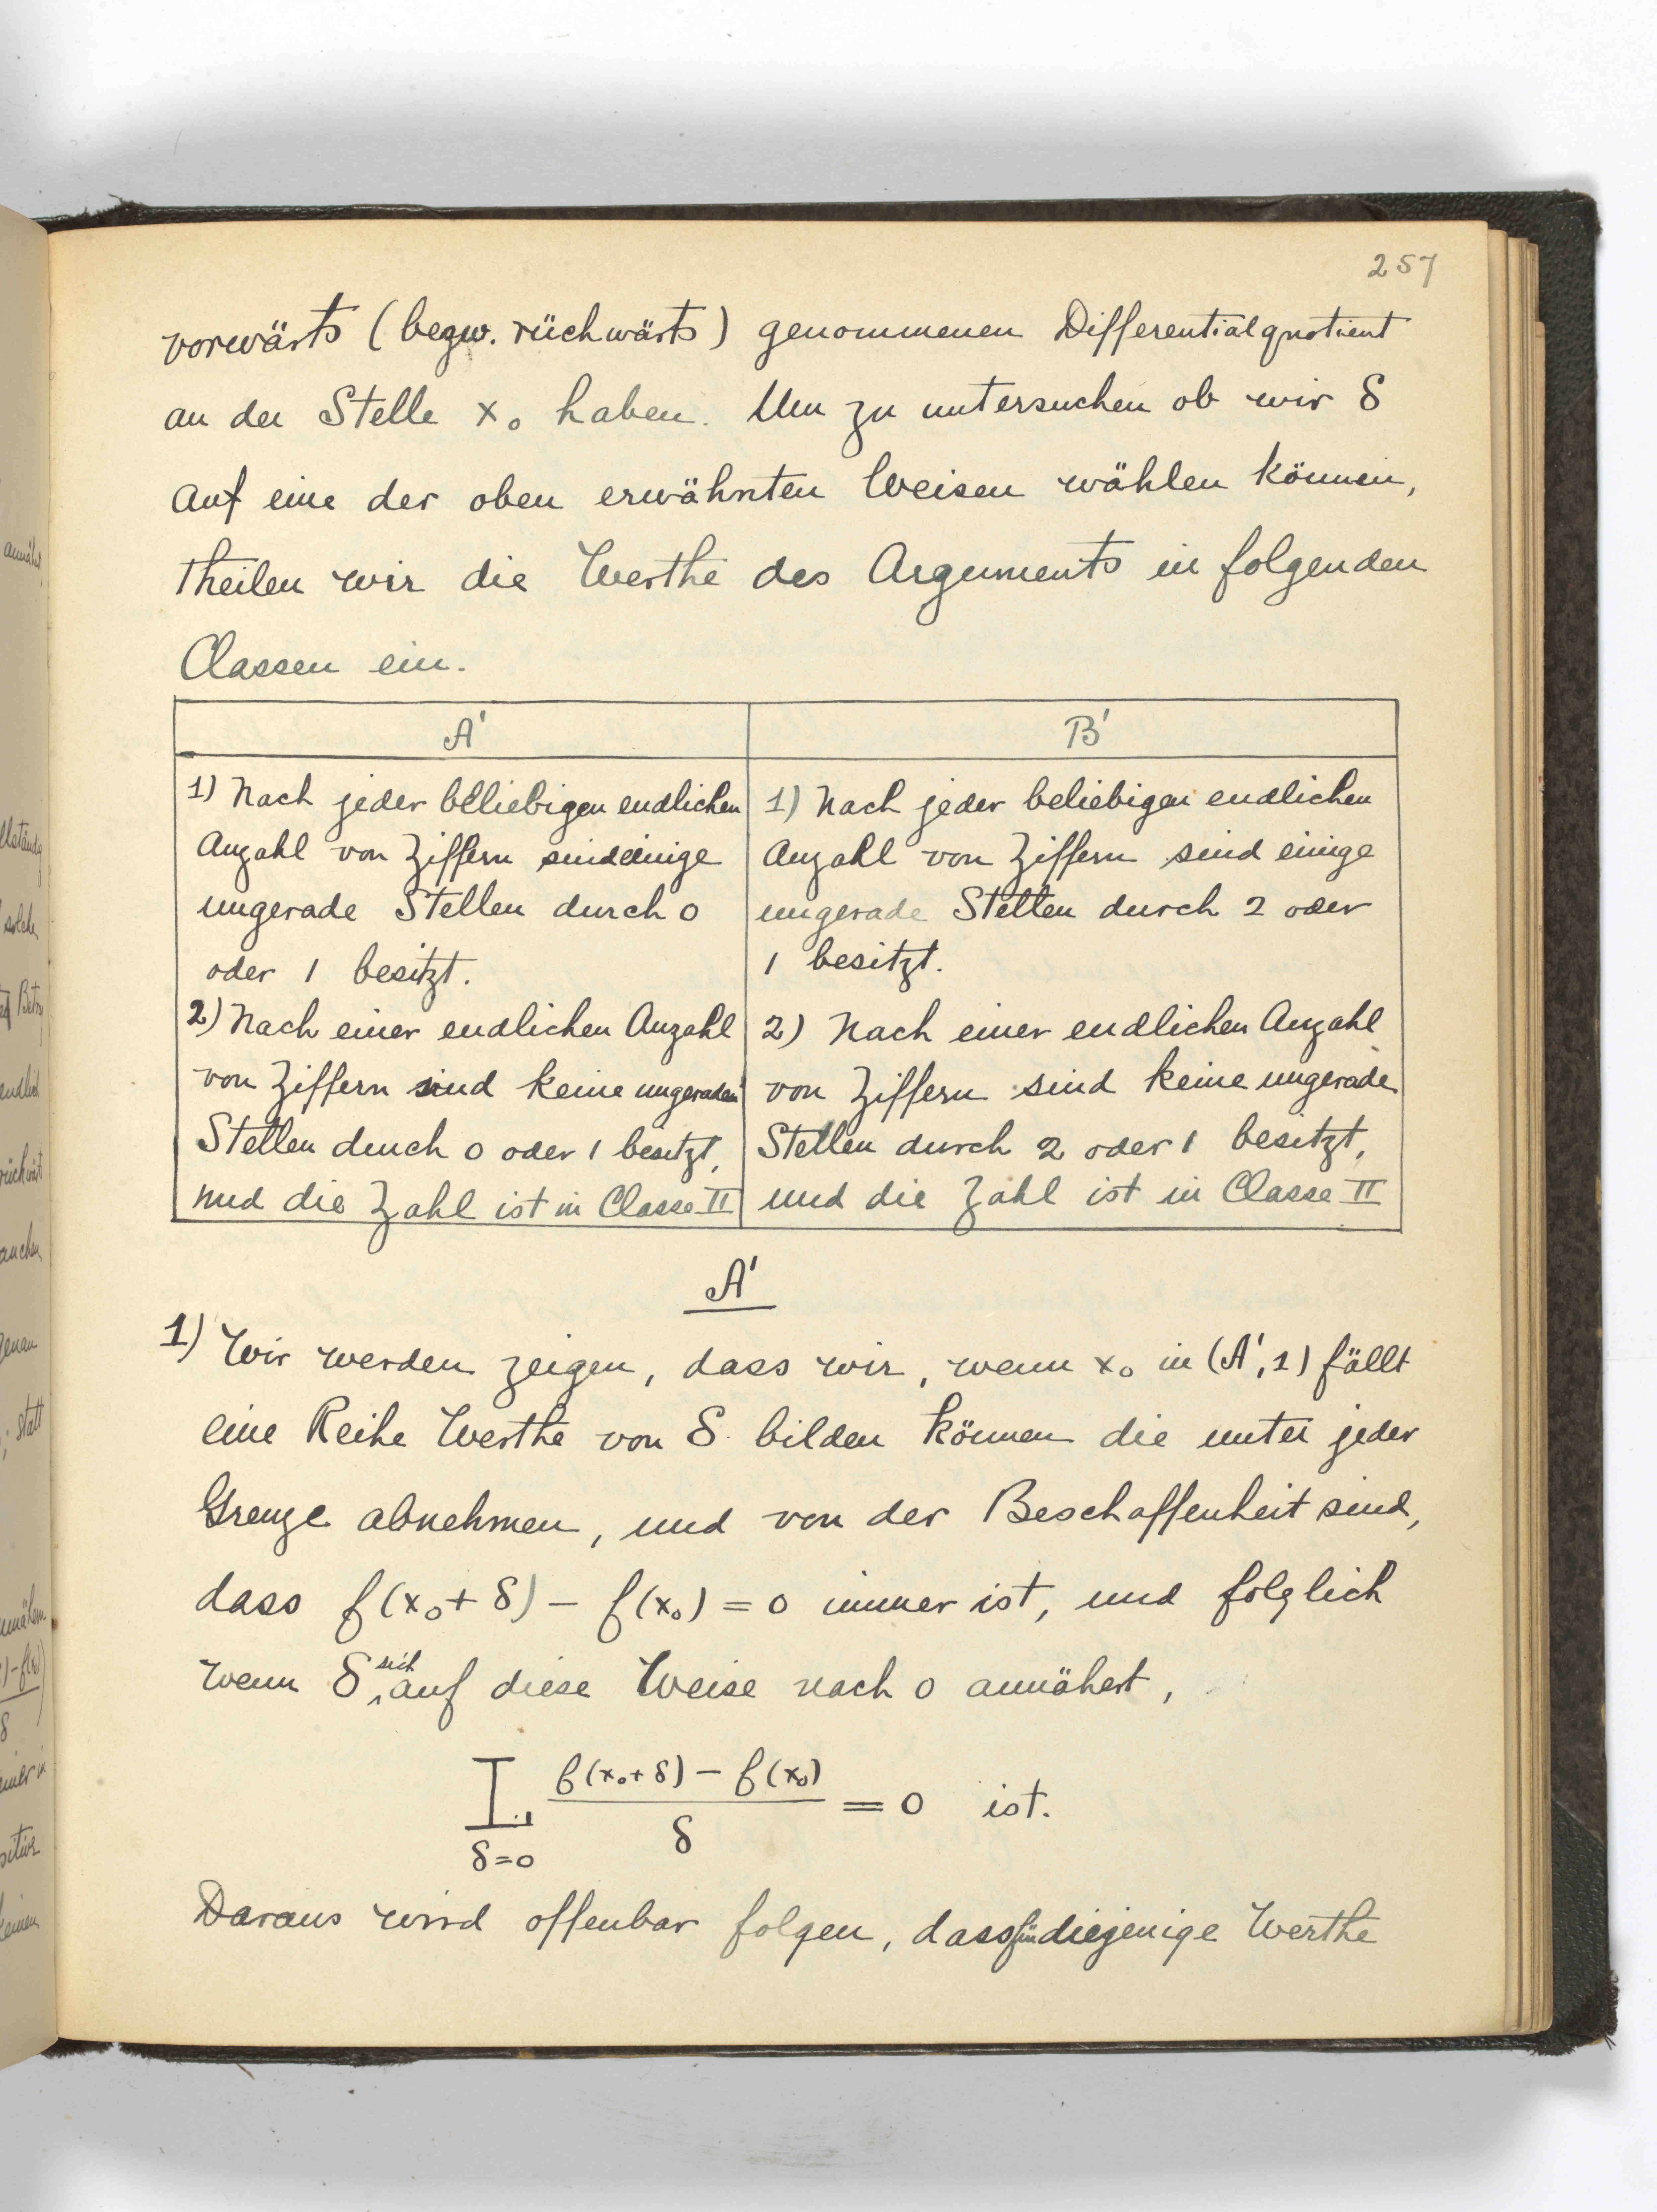 257
vorwärts (bezw. rückwärts) genommenen Differentialquotient
an der Stelle x₀ haben. Um zu untersuchen ob wir δ
auf eine der oben erwähnten Weisen wählen können,
theilen wir die Werthe des Arguments in folgenden
Classen ein.
A'
1) Nach jeder beliebigen endlichen
Anzahl von Ziffern sind einige
ungerade Stellen durch 0
oder 1 besitzt.
2) Nach einer endlichen Anzahl
von Ziffern sind keine ungeraden
Stellen durch 0 oder 1 besitzt,
und die Zahl ist in Classe II
B'
1) Nach jeder beliebigen endlichen
Anzahl von Ziffern sind einige
ungerade Stellen durch 2 oder
1 besitzt.
2) Nach einer endlichen Anzahl
von Ziffern sind keine ungerade
Stellen durch 2 oder 1 besitzt,
und die Zahl ist in Classe II
A'
1) Wir werden zeigen, dass wir, wenn x₀ in (A', 1) fällt
eine Reihe Werthe von δ bilden können die unter jeder
Grenze abnehmen, und von der Beschaffenheit sind,
dass f(x₀+δ) – f(x₀) = 0 immer ist, und folglich
wenn δ sich auf diese Weise nach 0 annähert,
L δ=0 (f(x₀+δ) – f(x₀))/δ = 0 ist.
Daraus wird offenbar folgen, dass für diejenige Werthe